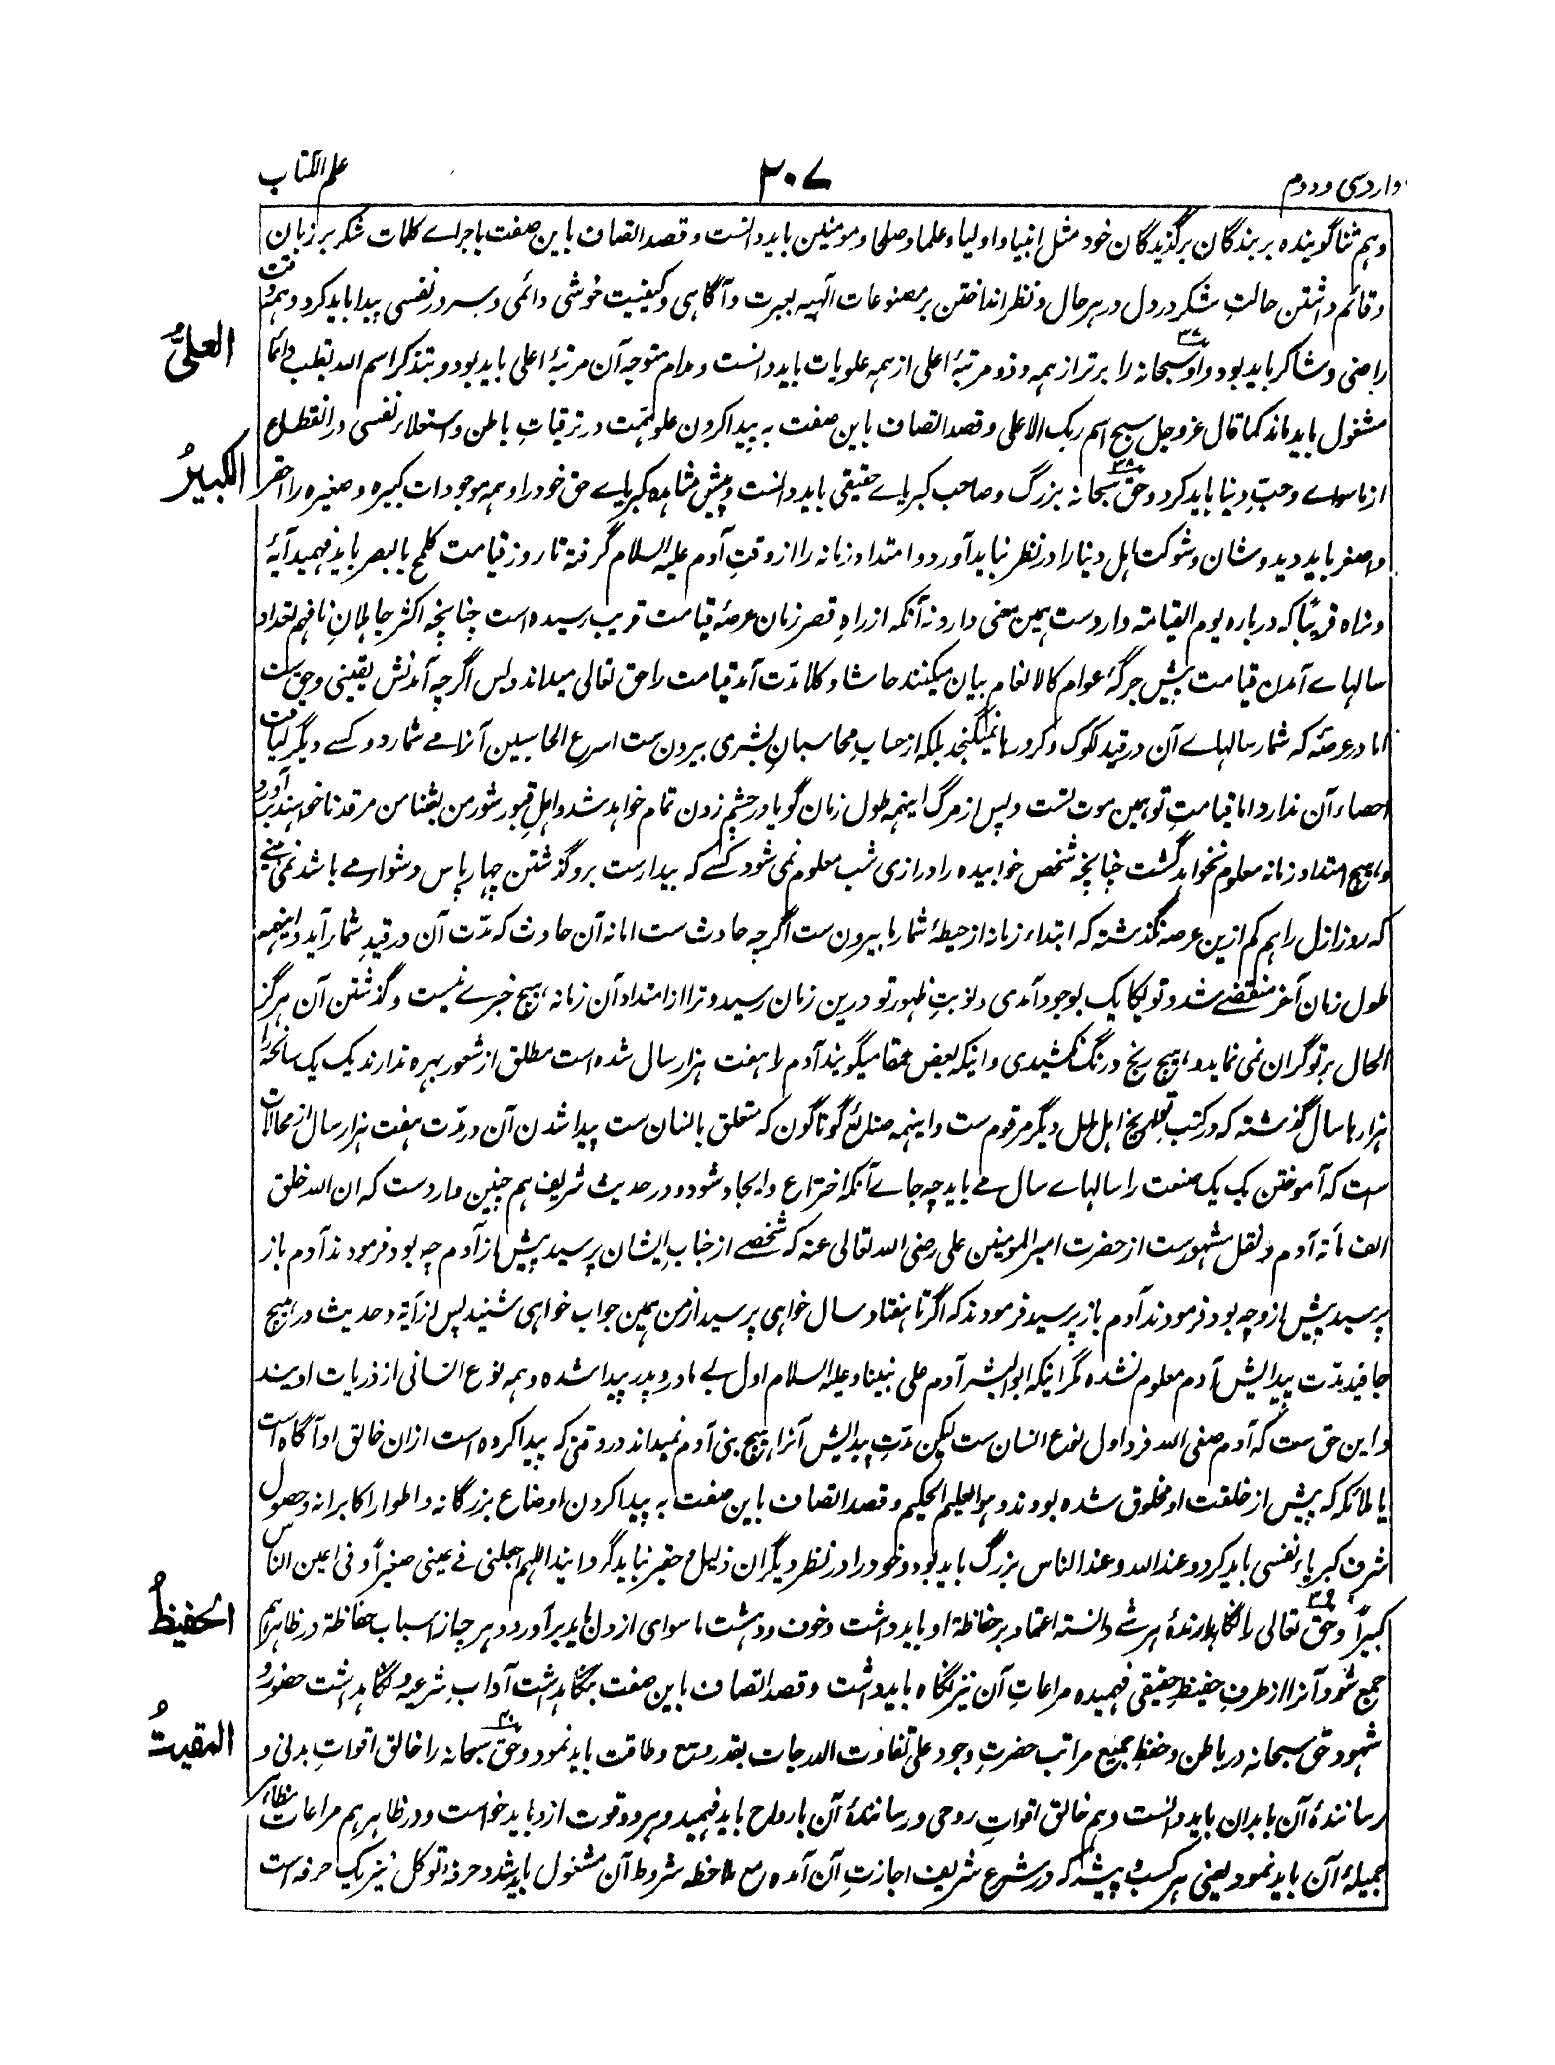 وارد سی و دوم
۳۰۷
علم الکتاب
و هم ثنا گوینده بر بندگان برگزیدگان خود مثل انبیا و اولیا و علما و صلحا و مومنین باید دانست و قصد اتصاف باین صفت باجراے کلمات شکر بر زبان
و قائم داشتن حالتِ شکر در دل در هر حال و نظر انداختن بر مصنوعات الٓهیه بعبرت و آگاهی و کیفیت خوشی دائمی و سرور نفسی پیدا باید کرد و همه وقت
العلیُّ
راضی و شاکر باید بود و او سبحانه را ۳۷ برتر از همه و ذو مرتبۂ اعلی از همه علویات باید دانست و مدام متوجه آن مرتبۂ اعلی باید بود و بتذکر اسم الله بقلب دائما
مشغول باید ماند کما قال عز و جل سبح اسم ربک الاعلی و قصد اتصاف باین صفت به پیدا کردن علو همت در ترقیاتِ باطن و استعلاء نفسی در انقطاع
الکبیرُ
از ماسواے و حبِ دنیا باید کرد و حق ۳۸ سبحانه بزرگ و صاحب کبریاے حقیقی باید دانست و پیش مشاهده کبریاے حق خود را و همه موجودات کبیره و صغیره را احقر
و اصغر باید دید و شان و شوکت اهل دنیا را در نظر نباید آورد و امتداد زمانه را از وقتِ آدم علیه السلام گرفته تا روز قیامت کلمح بالبصر باید فهمید آیۂ
و نراه قریبًا که درباره یوم القیامة وارد ست همین معنی دارد نه آنکه از راهِ قصر زمان عرصۂ قیامت قریب رسیده است چنانچه اکثر جاهلانِ نافهم تعداد
سالهاے آمدن قیامت پیش جرگۂ عوام کالانعام بیان میکنند حاشا و کلا مدّت آمد قیامت را حق تعالی میداند و بس اگرچه آمدنش یقینی و حق ست
اما در عرصۂ که شمار سالهاے آن در قید لکوک و کرورها نمیگنجد بلکه از حسابِ محاسبانِ بشری بیرون ست اسرع الحاسبین آنرا مے شمارد و کسے دیگر لیاقت
احصاء آن ندارد اما قیامتِ تو همین موت تست و پس از مرگ اینهمه طول زمان گویا در چشم زدن تمام خواهد شد و اهلِ قبور شور من بعثنا من مرقدنا خواهند برآورد
و هیچ امتداد زمانه معلوم نخواهد گشت چنانچه شخص خوابیده را درازی شب معلوم نمی شود کسے که بیدار ست برو گذشتن چهار پاس دشوار مے باشد نمی بینے
که روز ازل را هم کم ازین عرصه نگذشته که ابتداء زمانه از حیطۂ شمارها بیرون ست اگرچه حادث ست اما نه آن حادث که مدّت آن در قیدِ شمار آید و اینهمه
طول زمان آخر منقضے شد و تو یکایک بوجود آمدی و نوبتِ ظهور تو درین زمان رسید و ترا از امتداد آن زمانه هیچ خبرے نیست و گذشتن آن هرگز
الحال بر تو گران نمی نماید و هیچ رنج درنگ نکشیدی و اینکه بعض حمقا میگویند آدم را هفت هزار سال شده است مطلق از شعور بهره ندارند یک یک سانحه را
هزارها سال گذشته که در کتب تواریخ اهل ملل دیگر مرقوم ست و اینهمه صنائع گوناگون که متعلق بانسان ست پیدا شدن آن در مدّت هفت هزار سال از محالات
ست که آموختن یک یک صنعت را سالهاے سال مے باید چه جاے آنکه اختراع و ایجاد شود و در حدیث شریف هم چنین وارد ست که ان الله خلق
الف مأته آدم و نقل مشهورست از حضرت امیر المومنین علی رضی الله تعالی عنه که شخصے از جنابِ ایشان پرسید پیش از آدم چه بود فرمودند آدم باز
پرسید پیش ازو چه بود فرمودند آدم باز پرسید فرمودند که اگر تا هفتاد سال خواهی پرسید از من همین جواب خواهی شنید پس از آیة و حدیث در هیچ
جا قید مدّت پیدایش آدم معلوم نشده مگر اینکه ابو البشر آدم علی نبینا و علیه السلام اول بے مادر و پدر پیدا شده و همه نوع انسانی از ذریات اویند
و این حق ست که آدم صفی الله فرد اول نوع انسان ست لیکن مدّتِ پیدایش آنرا هیچ بنی آدم نمیداند در وقتی که پیدا کرده است ازان خالق او آگاه است
یا ملائکه که پیش از خلقت او مخلوق شده بودند و هو العلیم الحکیم و قصد اتصاف باین صفت به پیدا کردن اوضاع بزرگانه و اطوار اکابرانه و حصول
شرف کبریاء نفسی باید کرد و عند الله و عند الناس بزرگ باید بود و خود را در نظر دیگران ذلیل و حقیر نباید گردانید اللهم اجعلنی فے عینی صغیراً و فی اعین الناس
الحفیظُ
کبیراً و حق ۳۹ تعالی را نگاهدارندۂ هر شے دانسته اعتماد بر حفاظة او باید داشت و خوف و دهشت ماسوای از دل باید برآورد و هر چه از اسباب حفاظة در ظاهر هم
جمع شود آنرا از طرفِ حفیظِ حقیقی فهمیده مراعاتِ آن نیز نگاه باید داشت و قصد اتصاف باین صفت بنگاهداشت آدابِ شرعیه و نگاهداشت حضور و
المقیتُ
شهود حق سبحانه در باطن و حفظِ جمیع مراتب حضرتِ وجود علی تفاوت الدرجات بقدر وسع و طاقت باید نمود و حق ۴۰ سبحانه را خالق اقواتِ بدنی و
رسانندۂ آن بابدان باید دانست و هم خالق اقواتِ روحی و رسانندۂ آن بارواح باید فهمید و هر دو قوت ازو باید خواست و در ظاهر هم مراعات مظاهر
جمیلۂ آن باید نمود یعنی هر کسب و پیشه که در شرع شریف اجازتِ آن آمده مع ملاحظه شروط آن مشغول باید شد و حرفۂ توکل نیز یک حرفه است